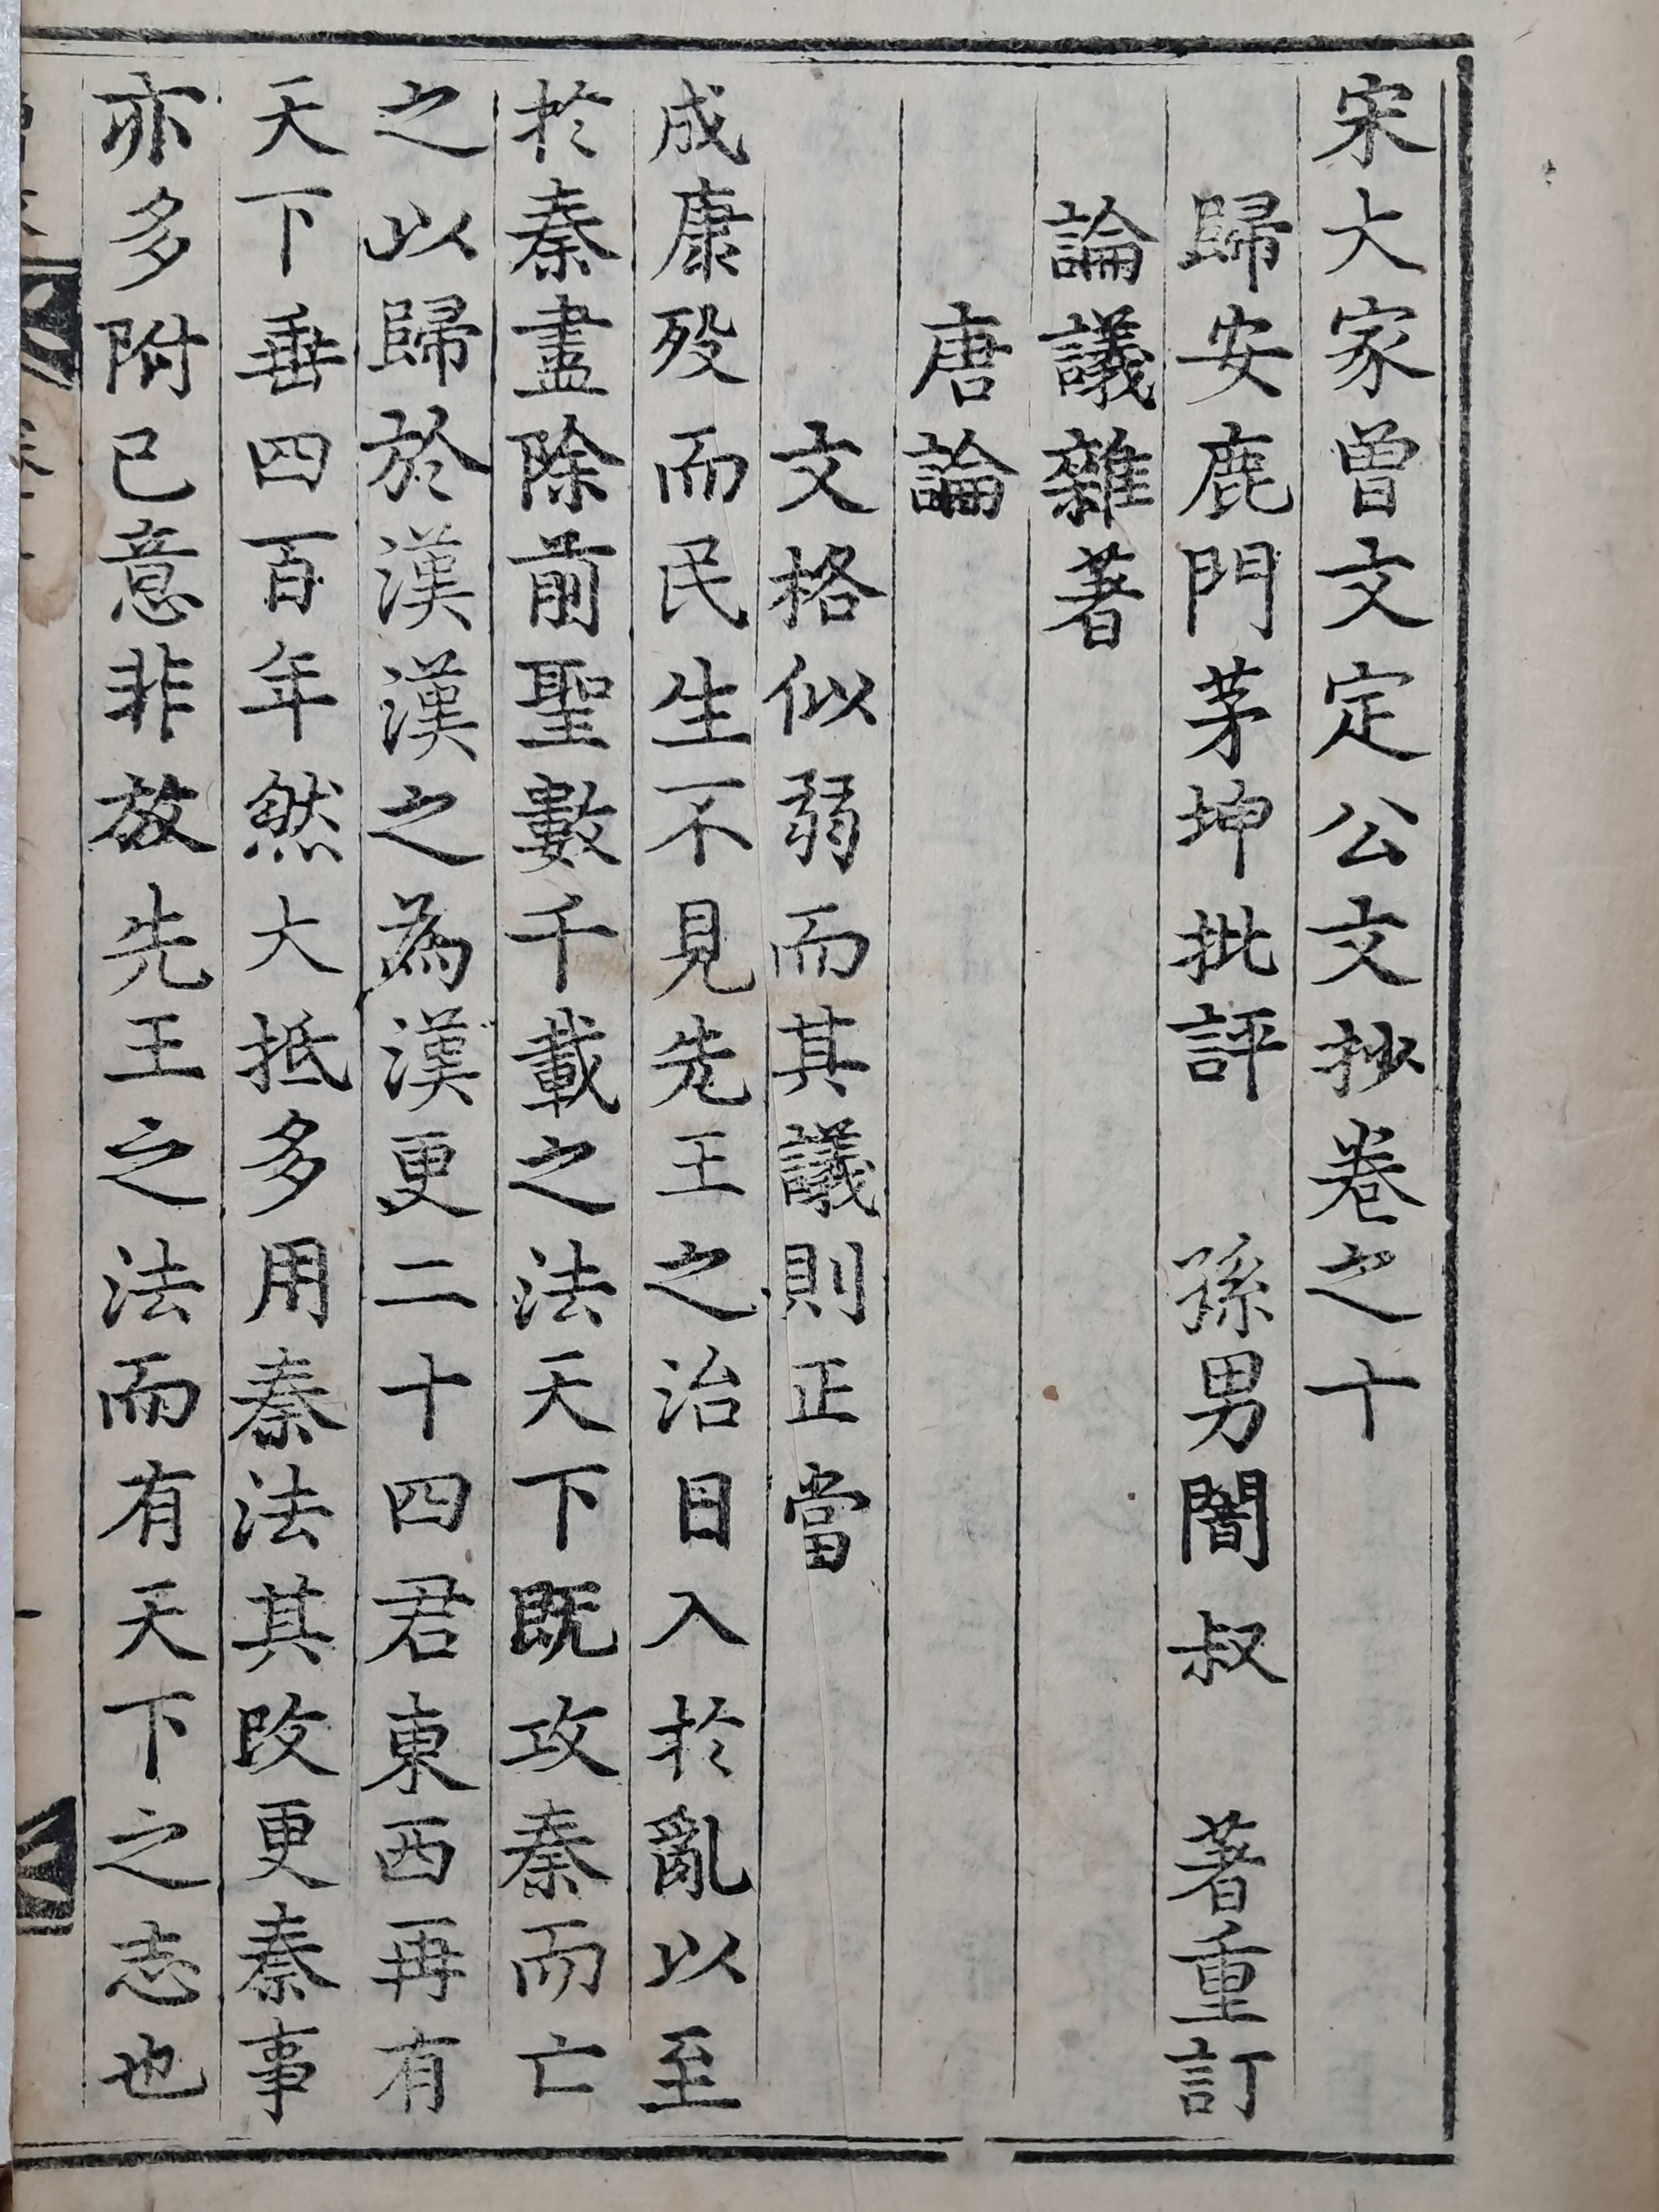 宋大家曾文定公文抄卷之十
歸安鹿門茅坤批評 孫男闇叔 著重訂
論議雜著
唐論
文格似弱而其議則正當
成康殁而民生不見先王之治日入於亂以至
於秦盡除前聖數千載之法天下既攻秦而亡
之以歸於漢漢之為漢更二十四君東西再有
天下垂四百年然大抵多用秦法其改更秦事
亦多附已意非放先王之法而有天下之志也